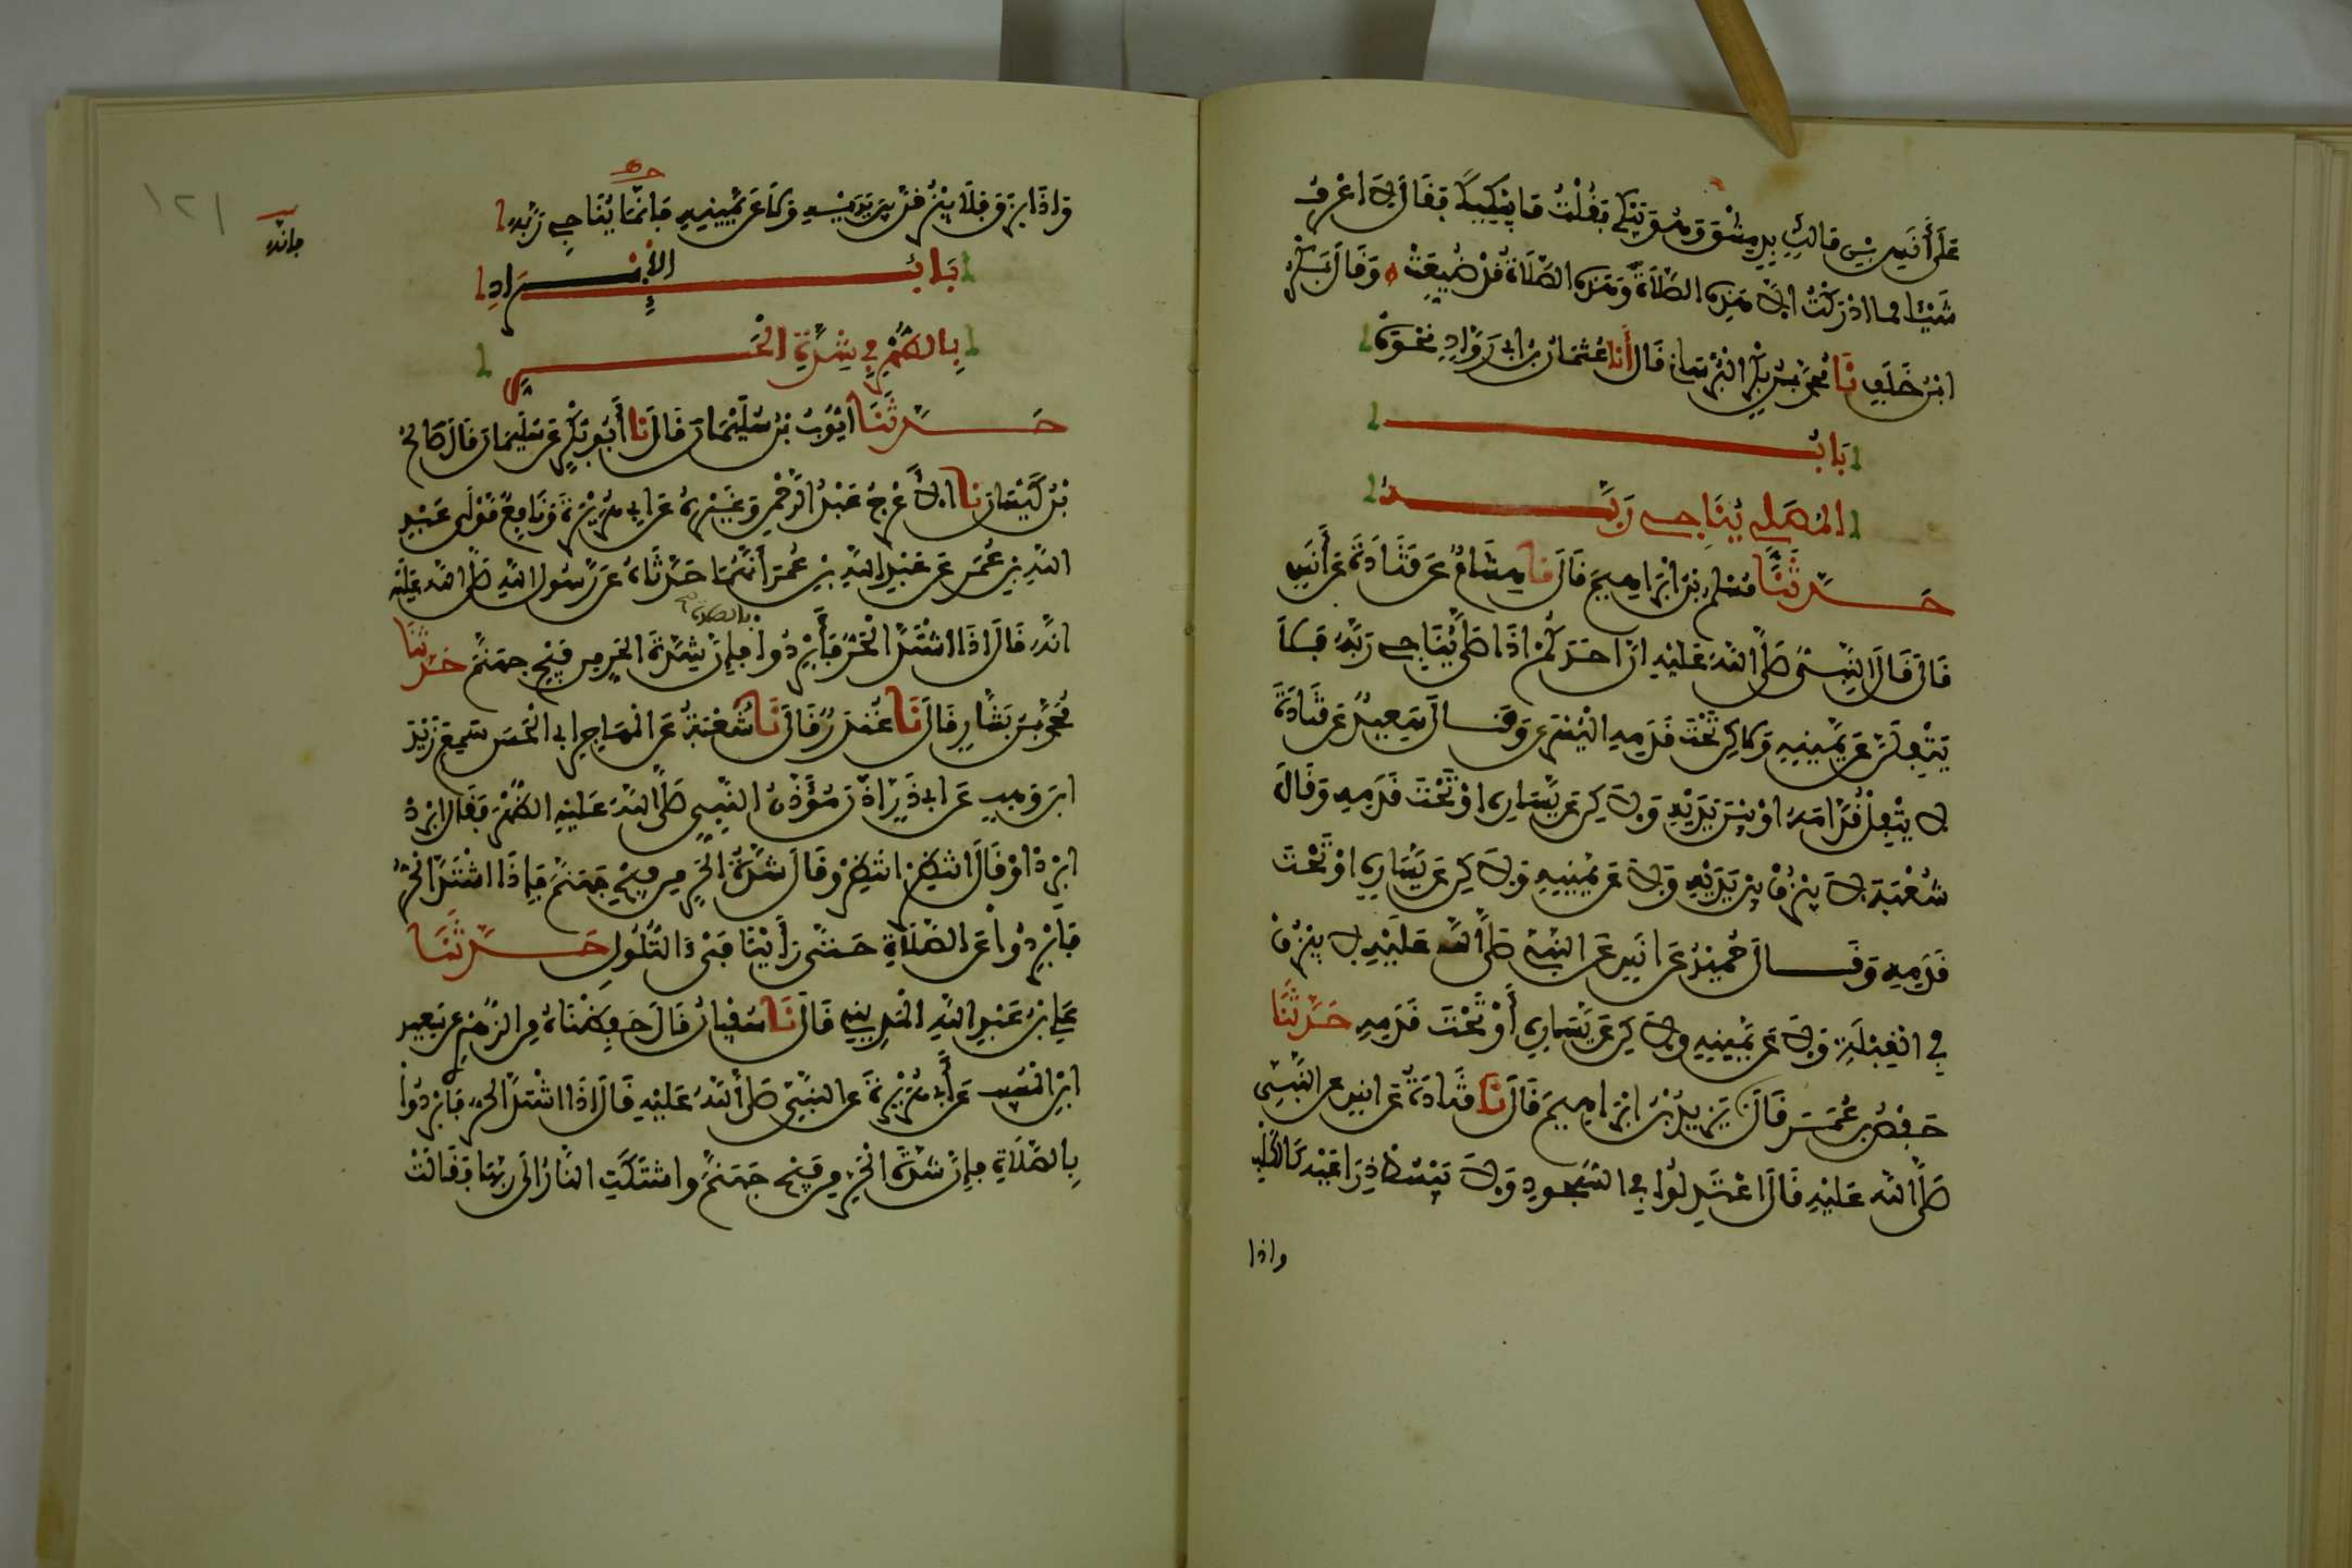 عَلَى أَنَسٍ بن مَالِكٍ بِدِمِشْقَ وَهُوَ يَبْكِي فَقُلْتُ مَا يُبْكِيكَ فَقَالَ لَا اعْرِفُ
شَيْئا مما ادْرَكْتُ الا هَذِهِ الصَّلَاةَ وَهَذِهِ الصَّلَاةُ قَدْ ضُيِّعَتْ وَقَالَ بَكْرُ
ابْنُ خَلَفٍ نَا مُحَمَّدُ بْنُ بَكْرٍ الْبُرْسَانِي قَالَ أَنا عُثْمَانُ بْنُ ابي رَوَّادٍ نَحْوَهُ
بَابُ
المُصَلِّي يُنَاجِي رَبَّهُ
حَدَّثَنَا مُسْلِمُ بْنُ ابْرَاهِيمَ قَالَ نَا هِشَامٌ عَن قَتَادَةَ عَن أَنَسٍ
قَالَ قَالَ النَّبِيُّ صَلَّى اللهُ عَلَيْهِ انَّ احَدَكُمْ اذَا صَلَّى يُنَاجِي رَبَّهُ فَلَا
يَتْفِلَنَّ عَن يَّمِينِهِ وَلَاكِن تَحْتَ قَدَمِهِ الْيُسْرَى وَقَالَ سَعِيدٌ عَن قَتَادَةَ
لا يَتْفِلْ قُدَّامَهُ اوْ بَيْنَ يَدَيْهِ وَلَاكِن عَن يَّسَارِهِ اوْ تَحْتَ قَدَمِهِ وَقَالَ
شُعْبَةُ لَا يَبْزُقْ بين يَدَيْهِ وَلَا عَن يَمِينِهِ وَلَاكِن عَن يَسَارِهِ اوْ تَحْتَ
قَدَمِهِ وَقَالَ حُمَيْدٌ عَن انَسٍ عَن النبيّ صَلَّى اللهُ عَلَيْهِ لَا يَبْزُقْ
فِي الْقِبْلَةِ وَلَا عَن يَّمِينِهِ وَلَاكِن عَن يَّسَارِهِ أَوْ تَحْتَ قَدَمِهِ حَدَّثَنَا
حَفْصُ بن عُمَرَ قَالَ نا يَزِيدُ بْنُ ابْرَاهِيمَ قَالَ نَا قَتَادَةُ عَن انَسٍ عن النَّبِيِّ
صَلَّى اللهُ عَلَيْهِ قَالَ اعْتَدِلُوا فِي السُّجُودِ وَلَا يَبْسُطْ ذِرَاعَيْهِ كَالْكَلْبِ
واذا
وَاذَا بَزَقَ فَلَا يَبْزُقَنَّ بين يَدَيْهِ وَلَا عَن يَّمِينِهِ فَانَّمَا يُنَاجِي رَبَّهُ
فانه
١٢١
بَابُ الإبْرَادِ
بِالظُّهْرِ فِي شِدَّةِ الْحَرِّ
حَدَّثَنَا ايُّوبُ بْنُ سُلَيْمَانَ قَالَ نَا أَبُو بَكْرٍ عَن سُلَيْمَانَ قَالَ صَالِحُ
بْنُ كَيْسَانَ نا الأَعْرَجُ عَبْدُ الرَّحْمنِ وَغَيْرُهُ عَن ابِي هُرَيْرَةَ وَنَافِعٌ مَّوْلَى عَبْدِ
اللهِ بن عُمَرَ عَن عَبْدِ اللهِ بْنِ عُمَرَ أَنَّهُمَا حَدَّثَاهُ عَن رَّسُولِ اللهِ صَلَّى اللهُ عَلَيْهِ
انَّهُ قَالَ اذَا اشْتَدَّ الْحَرُّ فَأَبْرِدُوا بالصلاة فإنَّ شِدَّةَ الحَرِّ مِن فَيْحِ جهَنَّمَ حَدَّثَنَا
مُحَمَّدُ بْنُ بَشَّارٍ قَالَ نَا غُنْدَرٌ قَالَ نَا شُعْبَةُ عَن الْمُهَاجِرِ ابي الْحَسَنِ سَمِعَ زَيْدَ
ابنَ وَهْبٍ عَن ابي ذَرٍّ اذَّنَ مُؤَذِّنُ النَّبِيِّ صَلَّى اللهُ عَلَيْهِ الظُّهْرَ فَقَالَ ابْرِدْ
ابْرِدْ اوْ قَالَ انْتَظِرْ انْتَظِرْ وَقَالَ شِدَّةُ الحَرِّ مِن فَيْحِ جَهَنَّمَ فَإِذَا اشْتَدَّ الْحَرُّ
فَابْرِدُوا عَن الصَّلَاةِ حَتَّى رَأَيْنَا فَيْءَ التُّلُولِ حَدَّثَنَا
عَلِيُّ بْنُ عَبْدِ اللهِ الْمَدِينِي قَالَ نَا سُفْيَانُ قَالَ حَفِظْنَاهُ مِن الزُّهْرِيِّ عَن سَعِيدِ
ابْنِ الْمُسَيِّبِ عَن أَبِي هُرَيْرَةَ عَن النَّبِيِّ صَلَّى اللهُ عَلَيْهِ قَالَ اذَا اشْتَدَّ الحَرُّ فَابْرِدُوا
بِالصَّلَاةِ فإِنَّ شِدَّةَ الْحَرِّ مِن فَيْحِ جَهَنَّمَ واشْتَكَتِ النَّارُ الَى رَبِّهَا فَقَالَتْ